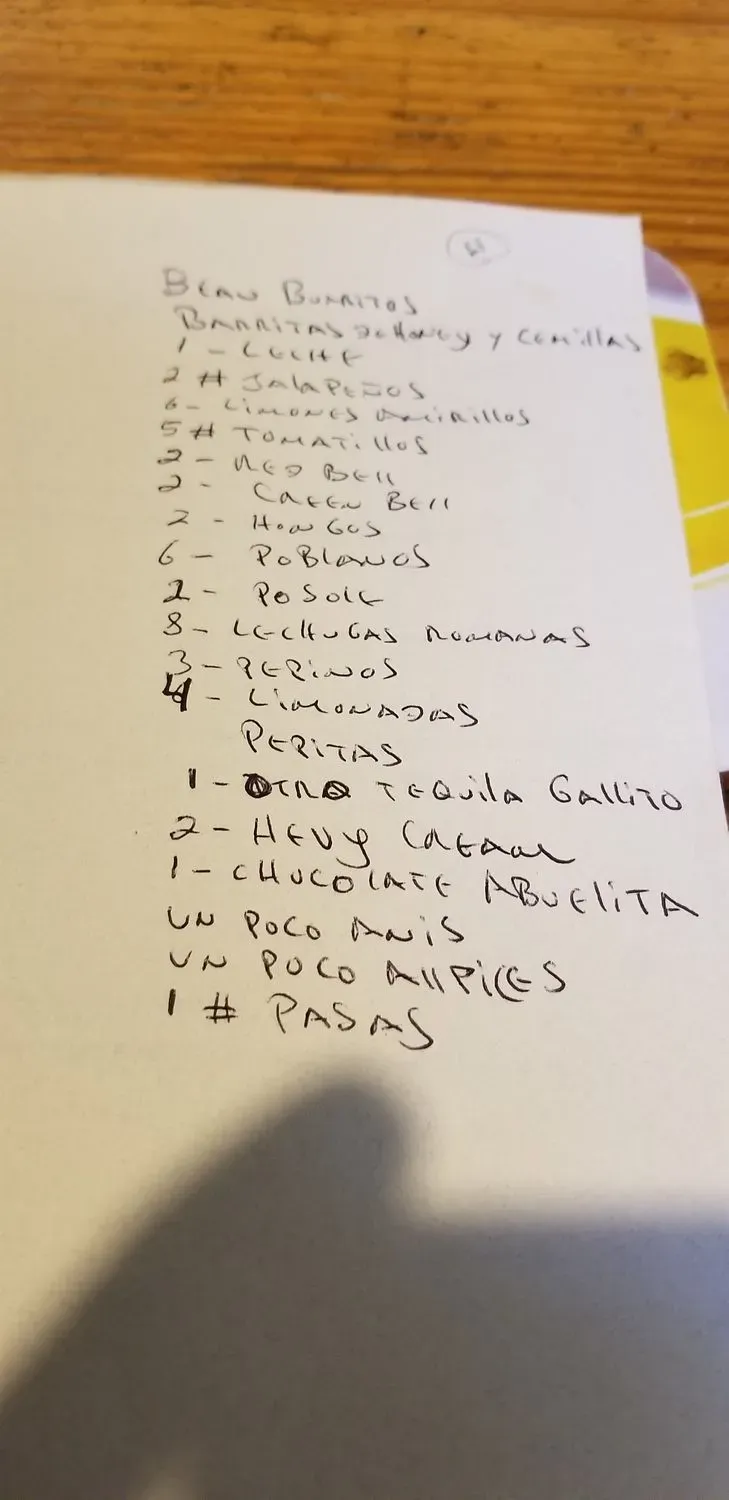 BEAN BURRITOS
BARRITAS DE HONEY y CEMillAS
1 - LECHE
2 # JALAPEÑOS
6 - LIMONES AMIRILLOS
5 # TOMATILLOS
2 - RED BELL
2 - GREEN BELL
2 - HONGOS
6 - POBLANOS
2 - POSOLE
8 - LECHUGAS ROMANAS
3 - PEPINOS
4 - LIMONADAS
PEPITAS
1 - OTRO TEQUILA GALLITO
2 - HEVY CREAM
1 - CHOCOLATE ABUELITA
UN POCO ANIS
UN POCO AllPiCES
1 # PASAS